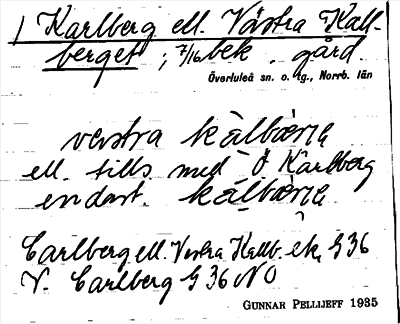 1 Karlberg ell. Västra Kall-
berget ; 7/16 bek. gård.
Överluleå sn. o. tg., Norrb. län
västra kälbærɳ
ell. tills. med Ö Karlberg
endast. kälbærɳ
Carlberg ell. Vestra Kallb. ek. G 36
V. Carlberg G 36 NO
GUNNAR PELLIJEFF 1935